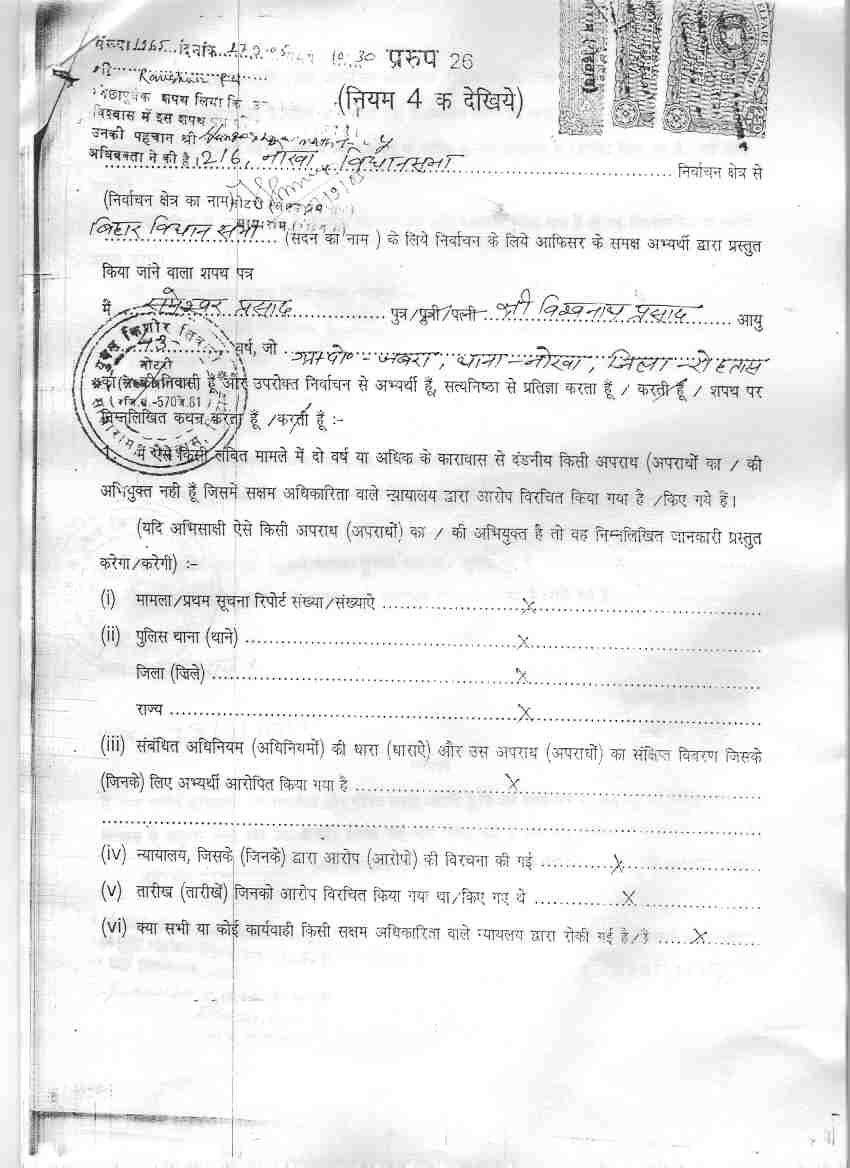 संख्या 1265 दिनांक 17.9.05 समय 10.30 प्ररुप 26
श्री
(नियम 4 क देखिये)
शपथ लिया कि
विश्वास में इस शपथ
उनकी पहचान श्री
अधिवक्ता ने की है।
216, नोखा विधानसभा निर्वाचन क्षेत्र से
(निर्वाचन क्षेत्र का नाम)
बिहार विधान सभा (सदन का नाम ) के लिये निर्वाचन के लिये आफिसर के समक्ष अभ्यर्थी द्वारा प्रस्तुत
किया जाने वाला शपथ पत्र
मैं रामेश्वर प्रसाद पुत्र/पुत्री/पत्नी श्री विश्वनाथ प्रसाद आयु
43 वर्ष, जो ग्राम पो०-जबरा, थाना-नोखा, जिला-रोहतास
का/की निवासी हूँ और उपरोक्त निर्वाचन से अभ्यर्थी हूँ, सत्यनिष्ठा से प्रतिज्ञा करता हूँ / करती हूँ / शपथ पर
निम्नलिखित कथन करता हूँ /करती हूँ :-
नोटरी
1. मैं ऐसे किसी लंबित मामले में दो वर्ष या अधिक के कारावास से दंडनीय किसी अपराध (अपराधों का / की
अभियुक्त नही हूँ जिसमें सक्षम अधिकारिता वाले न्यायालय द्वारा आरोप विरचित किया गया है /किए गये है।
(यदि अभिसाक्षी ऐसे किसी अपराध (अपराधों) का / की अभियुक्त है तो वह निम्नलिखित जानकारी प्रस्तुत
करेगा/करेगी) :-
(i) मामला/प्रथम सूचना रिपोर्ट संख्या/संख्याऐ X
(ii) पुलिस थाना (थाने) X
जिला (जिले) X
राज्य X
(iii) संबंधित अधिनियम (अधिनियमों) की धारा (धाराऐ) और उस अपराध (अपराधों) का संक्षिप्त विवरण जिसके
(जिनके) लिए अभ्यर्थी आरोपित किया गया है X
(iv) न्यायालय, जिसके (जिनके) द्वारा आरोप (आरोपो) की विरचना की गई X
(v) तारीख (तारीखें) जिनको आरोप विरचित किया गया था/किए गए थे X
(vi) क्या सभी या कोई कार्यवाही किसी सक्षम अधिकारिता वाले न्यायलय द्वारा रोकी गई है/है X